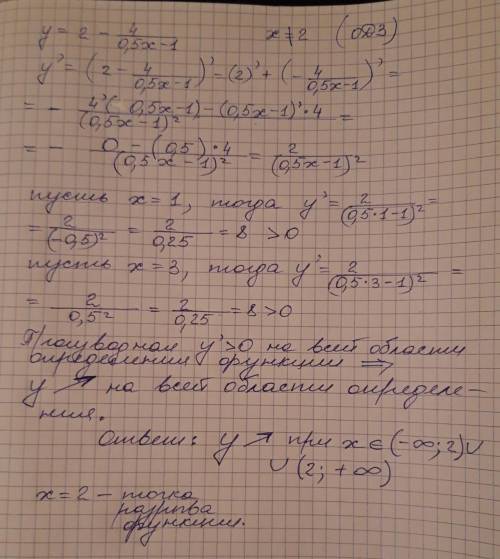 y = 2 - 4/(0,5x-1)    x ≠ 2    (ОДЗ)
y' = (2 - 4/(0,5x-1))' = (2)' + (- 4/(0,5x-1))' =
= - (4'(0,5x-1) - (0,5x-1)'·4)/(0,5x-1)² =
= - (0 - (0,5)·4)/(0,5x-1)² = 2/(0,5x-1)²
пусть x=1, тогда y' = 2/(0,5·1-1)² =
= 2/(-0,5)² = 2/0,25 = 8 >0
пусть x=3, тогда y' = 2/(0,5·3-1)² =
= 2/0,5² = 2/0,25 = 8 >0
Производная y'>0 на всей области
определения функции ⇒
y ↗ на всей области определе-
ния.
Ответ: y ↗ при x ∈ (-∞; 2) ∪
∪ (2; +∞)
x = 2 - точка
разрыва
функции.